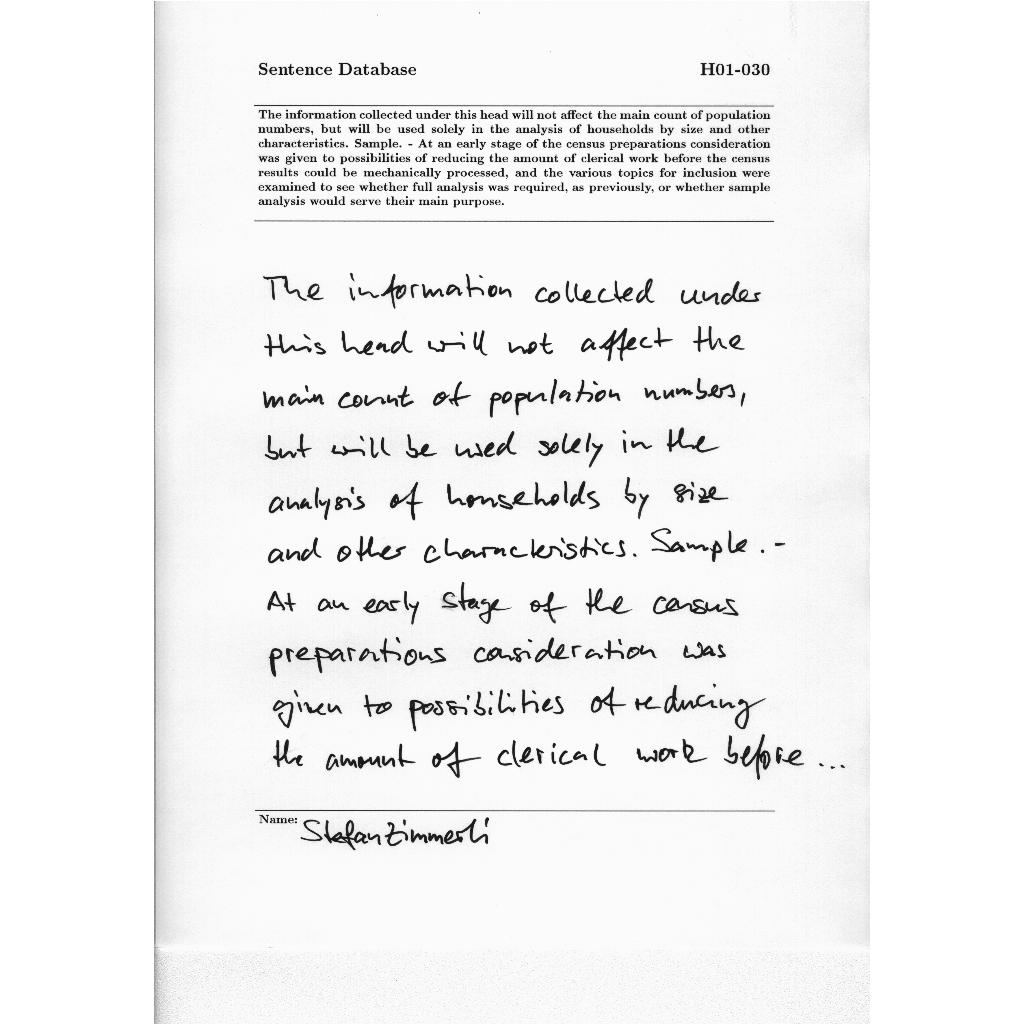 Sentence Database H01-030
The information collected under this head will not affect the main count of population
numbers, but will be used solely in the analysis of households by size and other
characteristics. Sample. - At an early stage of the census preparations consideration
was given to possibilities of reducing the amount of clerical work before the census
results could be mechanically processed, and the various topics for inclusion were
examined to see whether full analysis was required, as previously, or whether sample
analysis would serve their main purpose.
The information collected under
this head will not affect the
main count of population numbers,
but will be used solely in the
analysis of households by size
and other characteristics. Sample. -
At an early stage of the census
preparations consideration was
given to possibilities of reducing
the amount of clerical work before ...
Name: Stefan Zimmerli